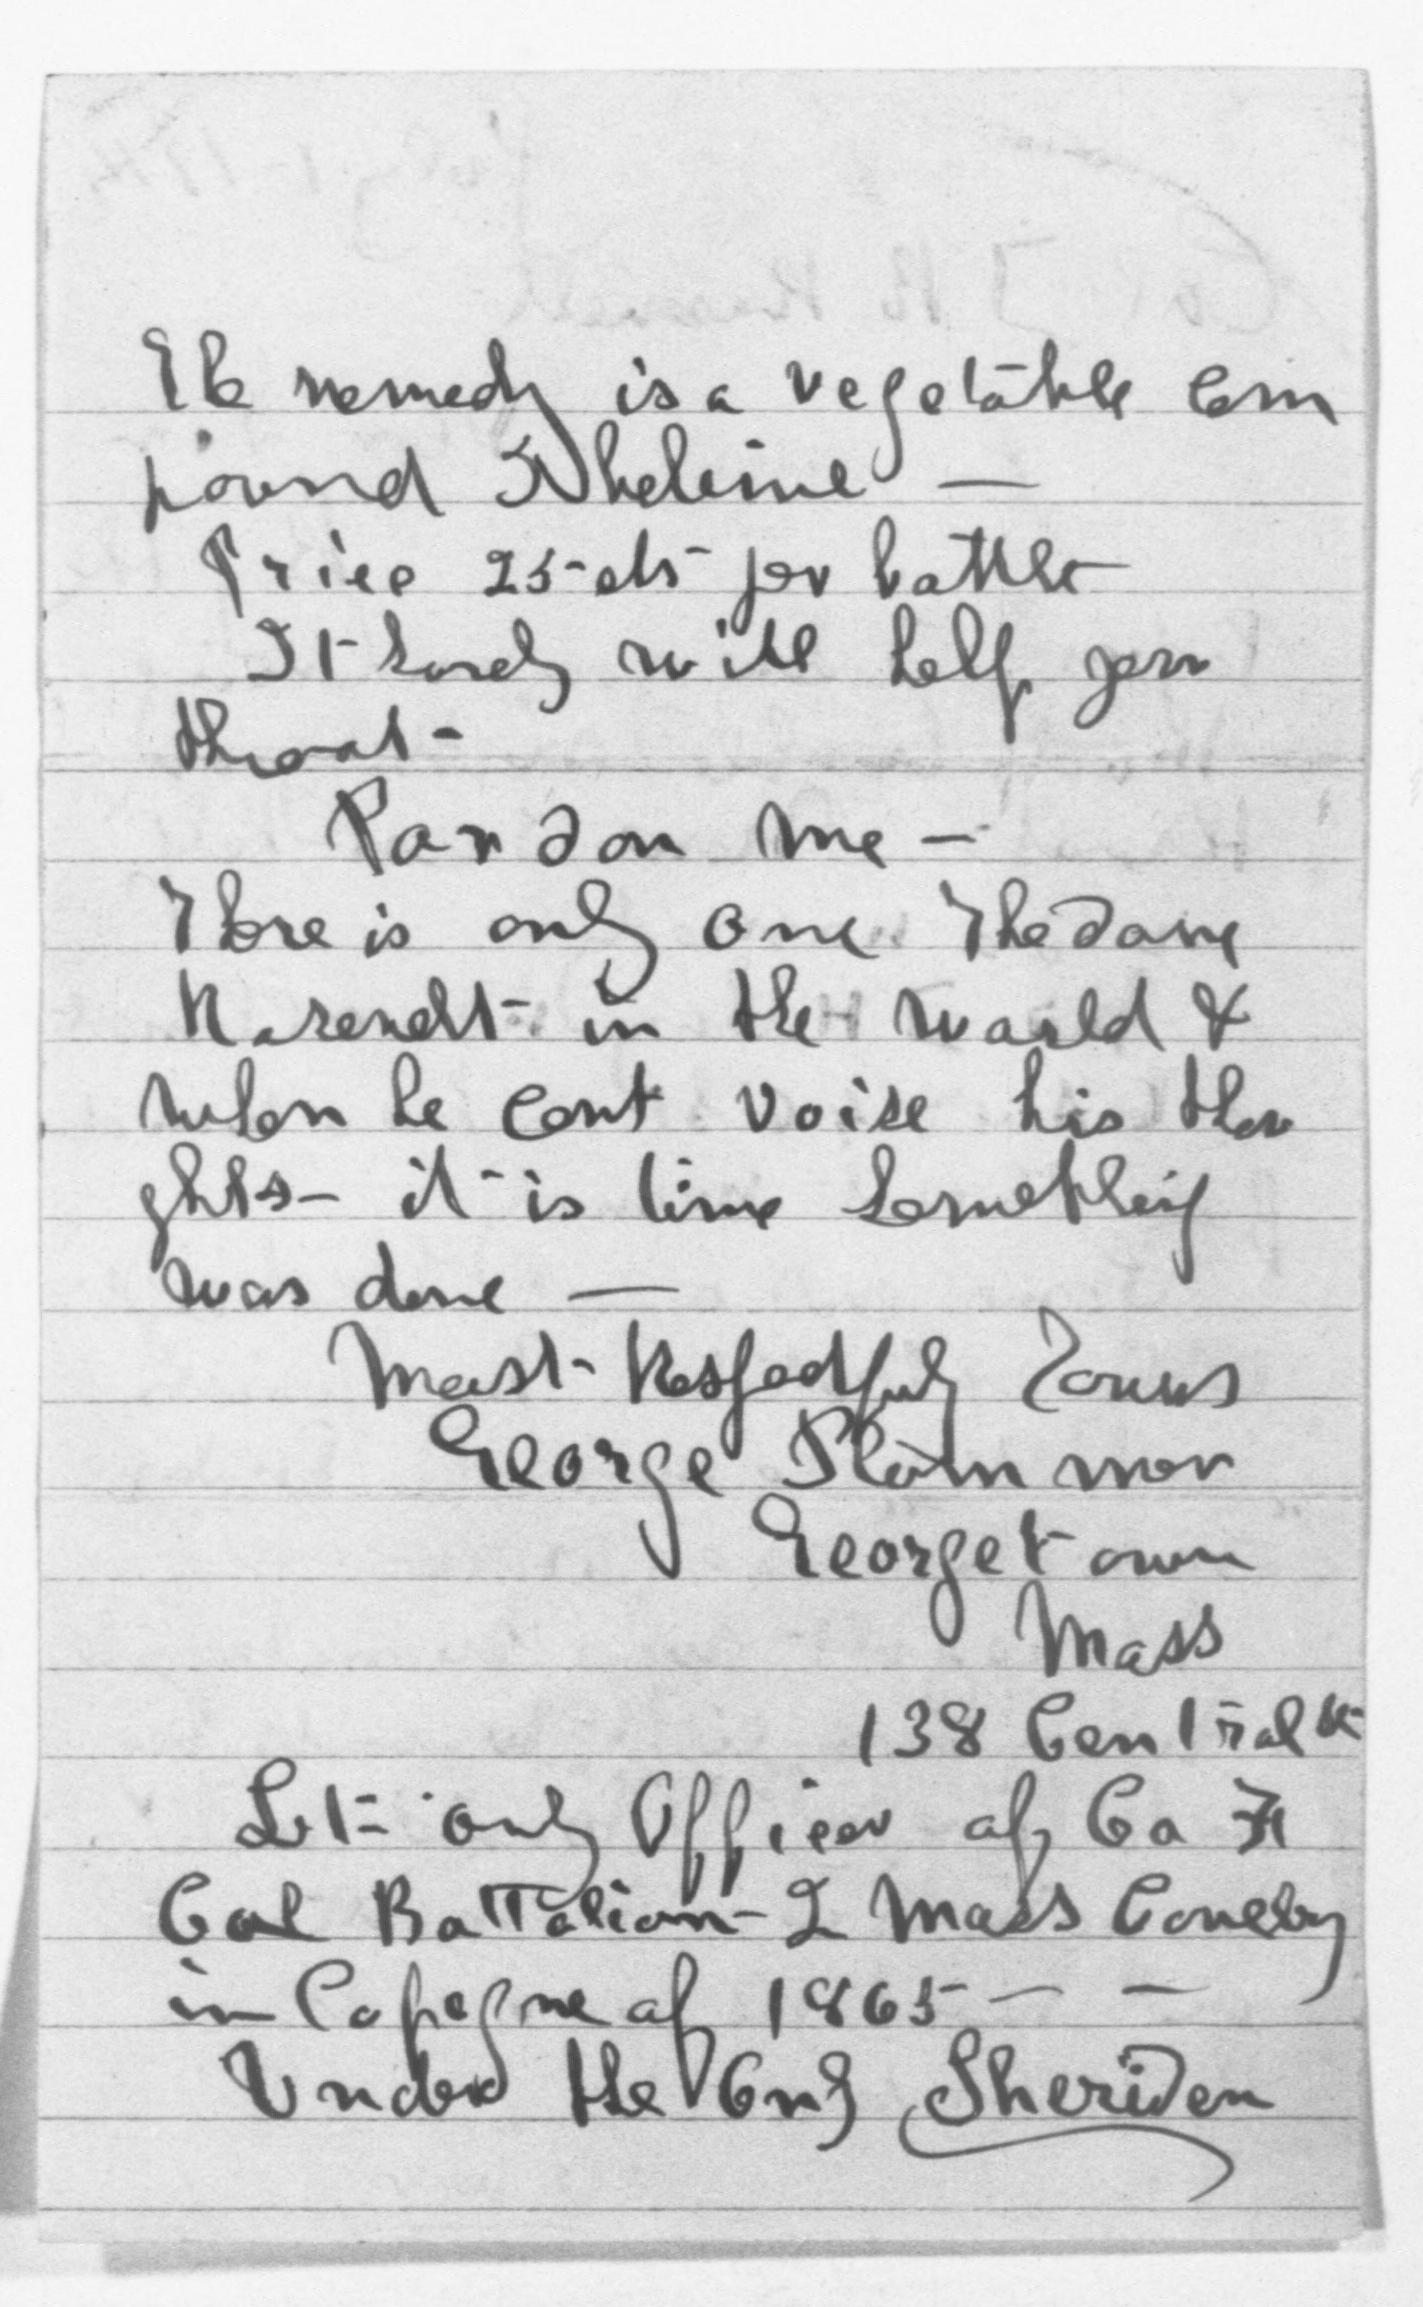 The remedy is a vegetable com
pound
Price 25 cts per bottle
It surely will help your
throat -
Pardon me -
There is only one Thedore
Rosevelt - in the World &
when he cant voise his thou
ghts - it is time something
was done —
Most - Respectfuly Yours
George Plummer
Georgetown
Mass
138 Central St
Let- only Officer of Co F
Cal Battalion - 2 Mass Cavelry
in Capagne of 1865 - — —
Under the Only Sheriden